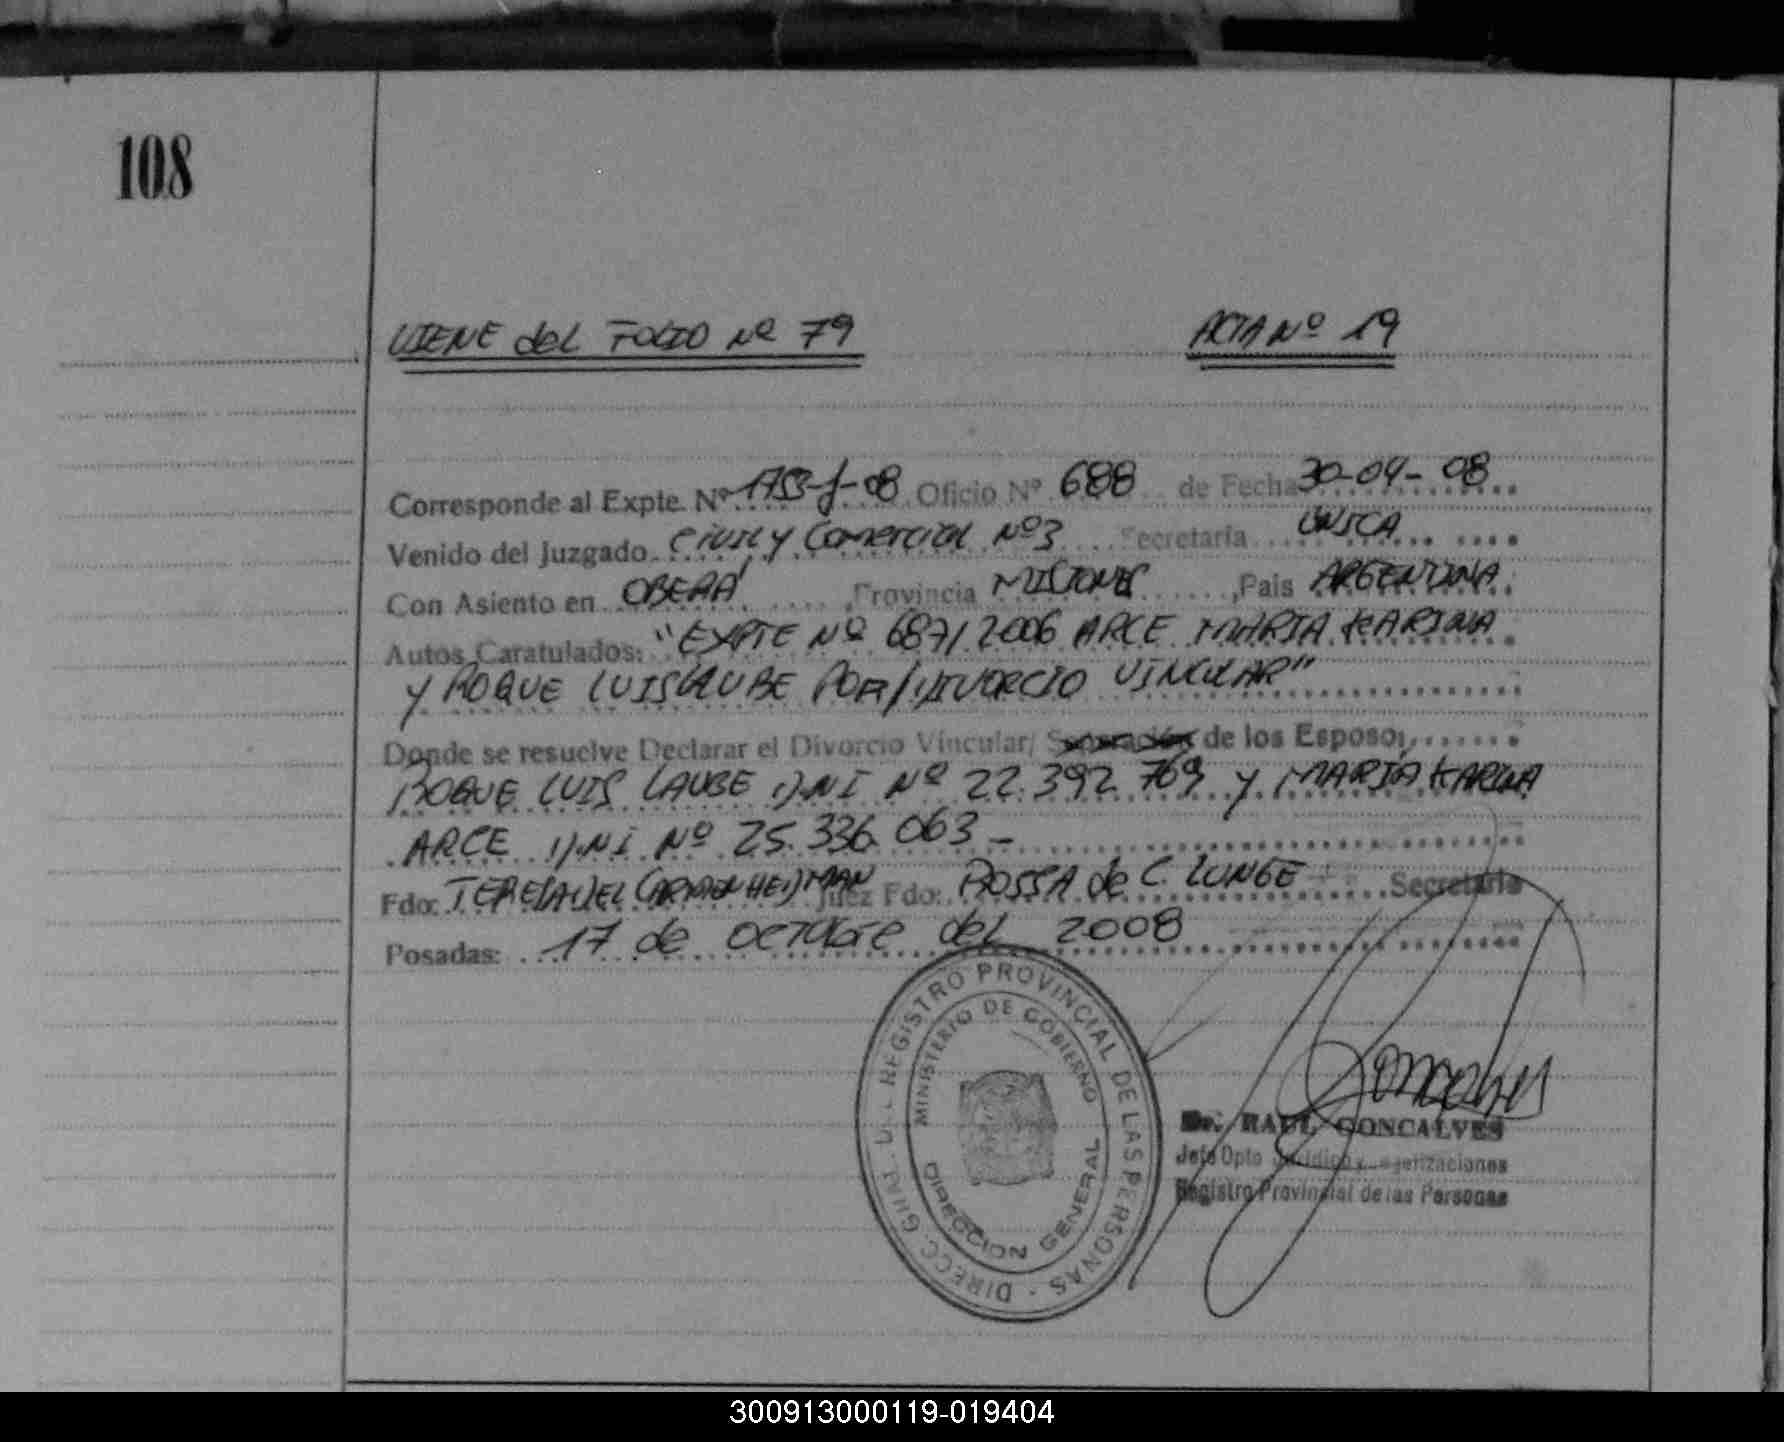 108
VIENE del FOLIO Nº 79 ACTA Nº 19
Corresponde al Expte. Nº 1753-J-08 Oficio Nº 688 de Fecha 30-04-08
Venido del Juzgado Civil y Comercial Nº3 Secretaria UNICA
Con Asiento en OBERA ,Provincia MISIONES ,Pais ARGENTINA
Autos Caratulados: "EXPTE Nº 687/2006 ARCE MARIA KARINA
y ROQUE LUIS LAUBE POR/DIVORCIO VINCULAR"
Donde se resuelve Declarar el Divorcio Vincular/ Separación de los Esposo,
ROQUE LUIS LAUBE D.NI Nº 22.392.769 y MARIA KARINA
ARCE D.NI Nº 25.336.063-
Fdo: TERESA DEL CARMEN HEDMAN Juez Fdo: ROSSA de C. LUNGE Secretaria
Posadas: 17 de octubre del 2008
REGISTRO PROVINCIAL DE LAS PERSONAS - DIRECC. GRAL.
MINISTERIO DE GOBIERNO
DIRECCION GENERAL
Goncalves
Dr. RAUL GONCALVES
Jefe Dpto Juridico y
Registro Provincial de las Personas
300913000119-019404